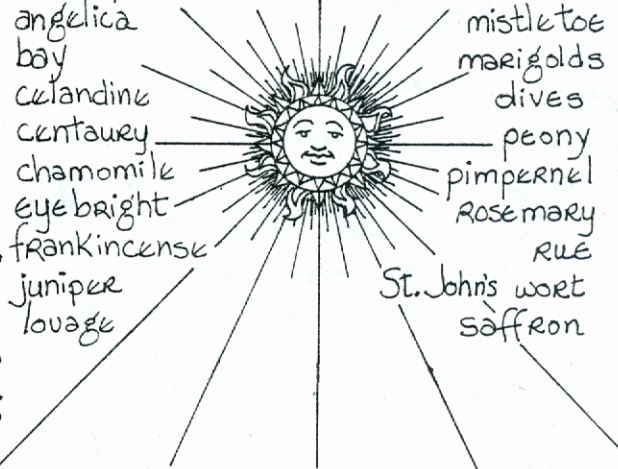 angelica
bay
celandine
centaury
chamomile
eyebright
frankincense
juniper
lovage
mistletoe
marigolds
olives
peony
pimpernel
Rosemary
Rue
St. John's wort
saffron